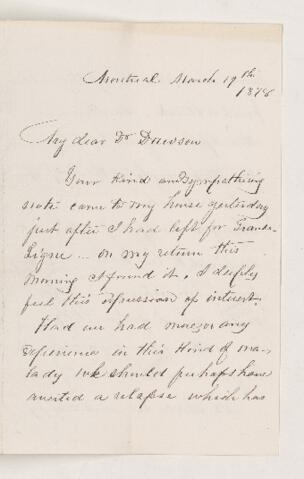 Montreal. March 19th.
1878
My dear Dr Dawson
Your kind and sympathising
note came to my house yesterday
just after I had left for Grande
Ligne ... on my return this
morning I found it. I deeply
feel this expression of interest.
Had we had more or any
experience in this kind of ma-
lady we should perhaps have
averted a relapse which has